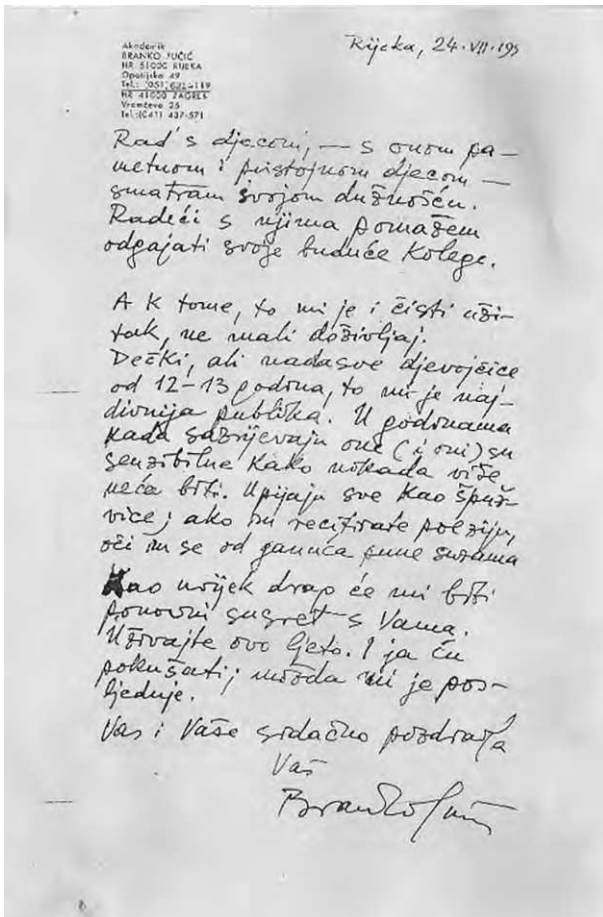 Akademik
BRANKO FUČIĆ
HR 51000 RIJEKA
Opatijska 49
Tel.: (051)
HR 41000 ZAGREB
Vramčeva 25
Tel.:(041) 437-571
Rijeka, 24.VII.199
Rad s djecom, — s onom pa-
metnom i pristojnom djecom —
smatram svojom dužnošću.
Radeći s njima pomažem
odgajati svoje buduće kolege.
A k tome, to mi je i čisti uži-
tak, ne mali doživljaj.
Dečki, ali nadasve djevojčice
od 12-13 godina, to mi je naj-
divnija publika. U godinama
kada sazrijevaju one (i oni) su
senzibilne kako nikada više
neće biti. Upijaju sve kao spuž-
vice; ako im recitirate poeziju,
oči im se od ganuća pune suzama
Kao uvijek drag će mi biti
ponovni susret s Vama.
Uživajte ovo ljeto. I ja ću
pokušati; možda mi je pos-
ljednje.
Vas i Vaše srdačno pozdravlja
Vaš
Branko Fučić